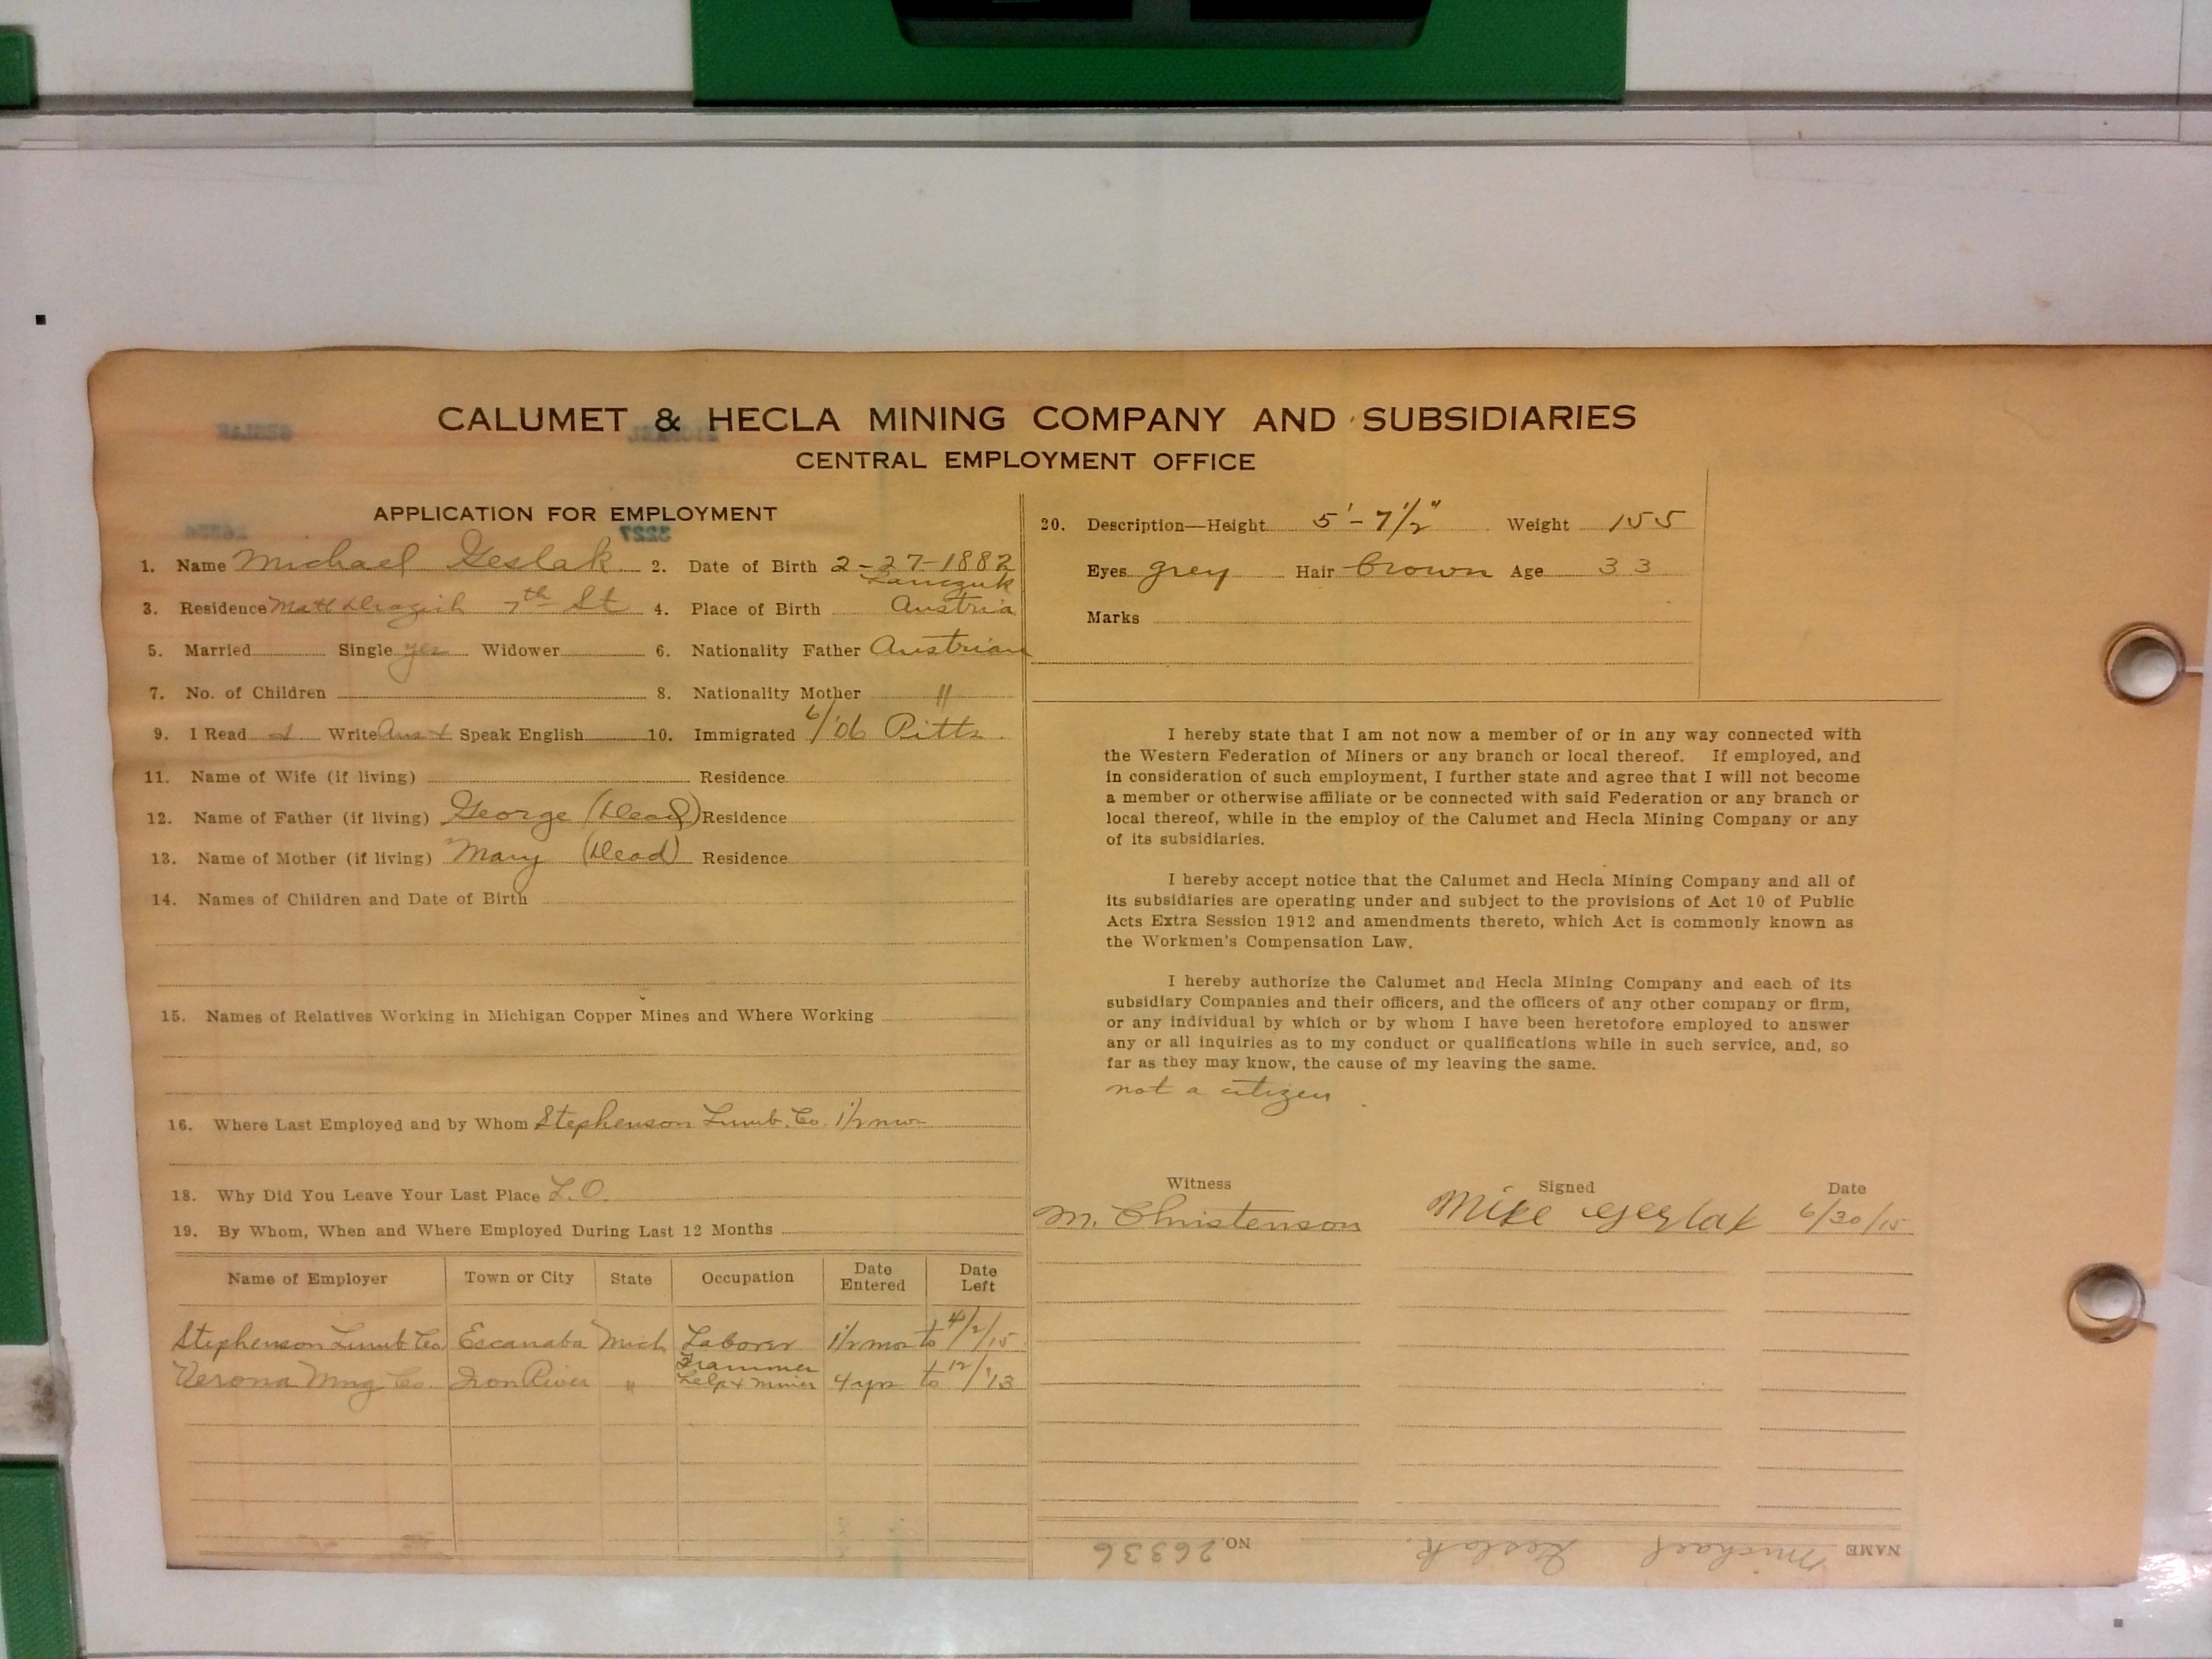 CALUMET & HECLA MINING COMPANY AND SUBSIDIARIES
CENTRAL EMPLOYMENT OFFICE
APPLICATION FOR EMPLOYMENT
1. Name Michael Geslak 2. Date of Birth 2-27-1882
3. Residence Matt 7th St 4. Place of Birth Austria
5. Married Single yes Widower 6. Nationality Father Austrian
7. No. of Children 8. Nationality Mother "
9. I Read Write Aus Speak English 10. Immigrated 6/06 Pitts.
11. Name of Wife (if living) Residence
12. Name of Father (if living) George (Dead) Residence
13. Name of Mother (if living) Mary (Dead) Residence
14. Names of Children and Date of Birth
15. Names of Relatives Working in Michigan Copper Mines and Where Working
16. Where Last Employed and by Whom Stephenson Lumb. Co. 1½ mos
18. Why Did You Leave Your Last Place L.O.
19. By Whom, When and Where Employed During Last 12 Months
Name of Employer Town or City State Occupation Date Entered Date Left
Stephenson Lumb Co Escanaba Mich Laborer 1½ mos to 4/2/15
Trammer
Verona Mng Co. Iron River " help + miner 4 yrs to 12/'13
20. Description—Height 5'-7½" Weight 155
Eyes grey Hair Brown Age 33
Marks
I hereby state that I am not now a member of or in any way connected with
the Western Federation of Miners or any branch or local thereof. If employed, and
in consideration of such employment, I further state and agree that I will not become
a member or otherwise affiliate or be connected with said Federation or any branch or
local thereof, while in the employ of the Calumet and Hecla Mining Company or any
of its subsidiaries.
I hereby accept notice that the Calumet and Hecla Mining Company and all of
its subsidiaries are operating under and subject to the provisions of Act 10 of Public
Acts Extra Session 1912 and amendments thereto, which Act is commonly known as
the Workmen's Compensation Law.
I hereby authorize the Calumet and Hecla Mining Company and each of its
subsidiary Companies and their officers, and the officers of any other company or firm,
or any individual by which or by whom I have been heretofore employed to answer
any or all inquiries as to my conduct or qualifications while in such service, and, so
far as they may know, the cause of my leaving the same.
not a citizen
Witness Signed Date
M. Christenson Mike Geslak 6/30/15
NAME Michael Geslak. NO. 26336